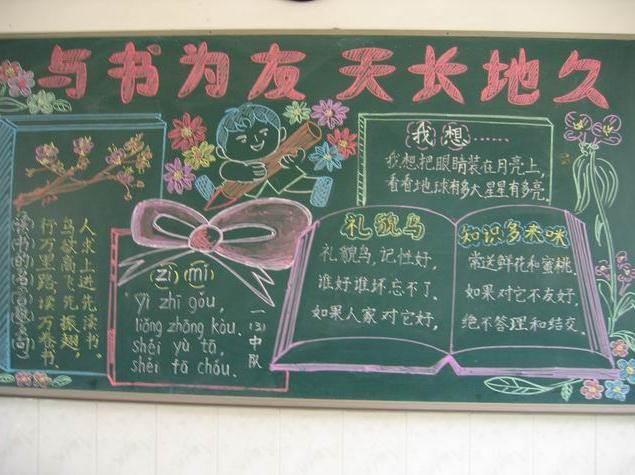 与书为友 天长地久
读书的名言
行万里路，读万卷书。
鸟欲高飞先振翅，
人求上进先读书。
(zì) (mí)
Yì zhī gǒu,
liǎng zhāng kǒu,
shéi yù tā,
shéi fā chóu.
一(3)中队
我想……
我想把眼睛装在月亮上，
看看地球有多大星星有多亮。
礼貌鸟
礼貌鸟，记性好，
谁好谁坏忘不了、
如果人家对它好，
知识多来咪
常送鲜花和蜜桃
如果对它不友好，
绝不答理和结交。